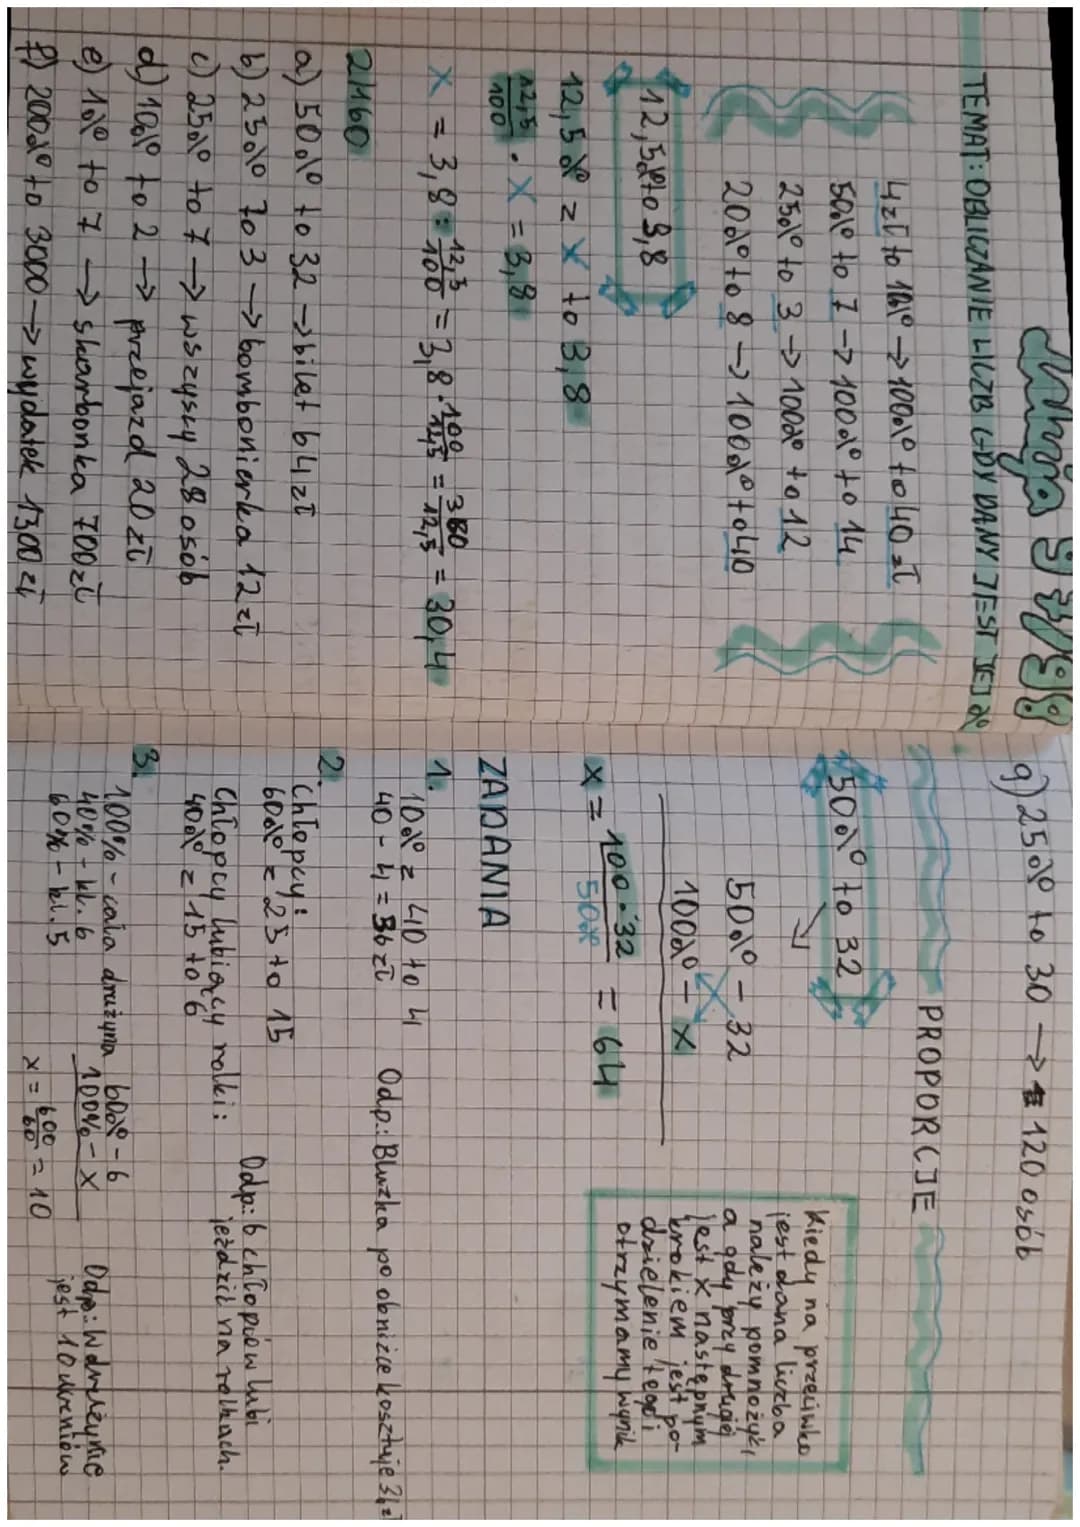 TEMAT: OBLICZANIE LICZB GDY DANY JEST JEJ %
4zł to 10% → 100% to 40 zł
50% to 7 → 100% to 14
25% to 3 → 100% to 12
20% to 8 → 100% to 40
12,5% to 3,8
12,5% z X to 3,8
12,5/100 · X = 3,8
X = 3,8 : 12,5/100 = 3,8 · 100/12,5 = 380/12,5 = 30,4
a) 50% to 32 → bilet 64zł
b) 25% to 3 → bombonierka 12 zł
c) 25% to 7 → wszyscy 28 osób
d) 10% to 2 → przejazd 20zł
e) 1% to 7 → skarbonka 700zł
f) 200% to 3000 → wydatek 1500 zł
g) 25% to 30 → 120 osób
PROPORCJE
50% to 32
50% – 32
100% – X
X = 100·32/50% = 64
Kiedy na przeciwko
jest dana liczba
należy pomnożyć,
a gdy przy drugiej
jest X następnym
krokiem jest po-
dzielenie tego i
otrzymamy wynik
ZADANIA
1.
10% z 40 to 4
40 - 4 = 36 zł
Odp.: Bluzka po obniżce kosztuje
2.
Chłopcy:
60% z 25 to 15
Chłopcy lubiący rolki:
40% z 15 to 6
Odp.: 6 chłopców lubi
jeździć na rolkach.
3.
100% - cała drużyna
40% - kl. 6
60% - kl. 5
60% - 6
100% - X
x = 600/60 = 10
Odp.: W drużynie
jest 10 uczniów